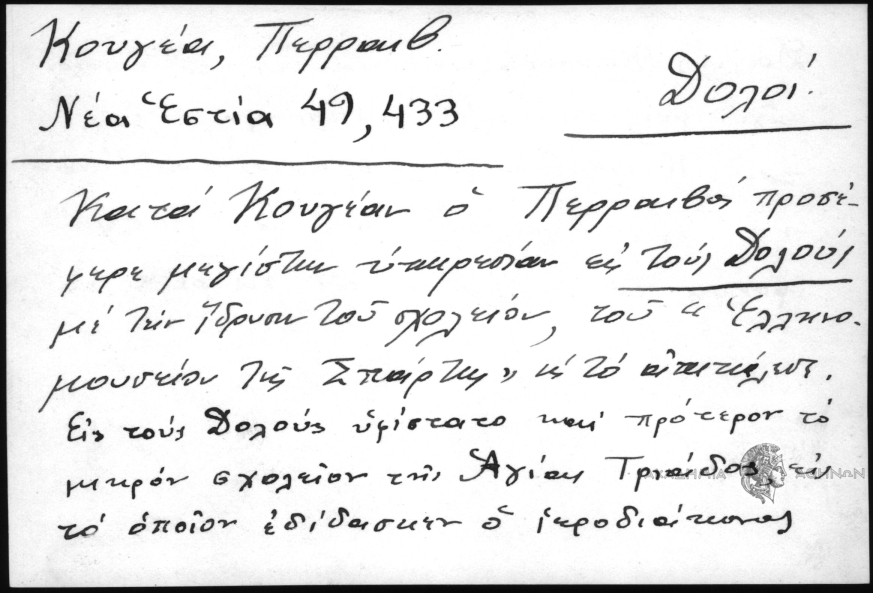 Κουγέα, Περραιβ.
Δολοί.
Νέα Ἑστία 49, 433
Κατά Κουγέαν ὁ Περραιβός προσέ-
φερε μεγίστην ὑπηρεσίαν εἰς τούς Δολούς
μέ τήν ἵδρυσιν τοῦ σχολείου, τοῦ "Ἑλληνο-
μουσείου τῆς Σπάρτης" ὡς τό ἀπεκάλεσε.
Εἰς τούς Δολούς ὑφίστατο καί πρότερον τό
μικρόν σχολεῖον τῆς Ἁγίας Τριάδος, εἰς
τό ὁποῖον ἐδίδασκεν ὁ ἱεροδιάκονος
ΑΚΑΔΗΜΙΑ ΑΘΗΝΩΝ